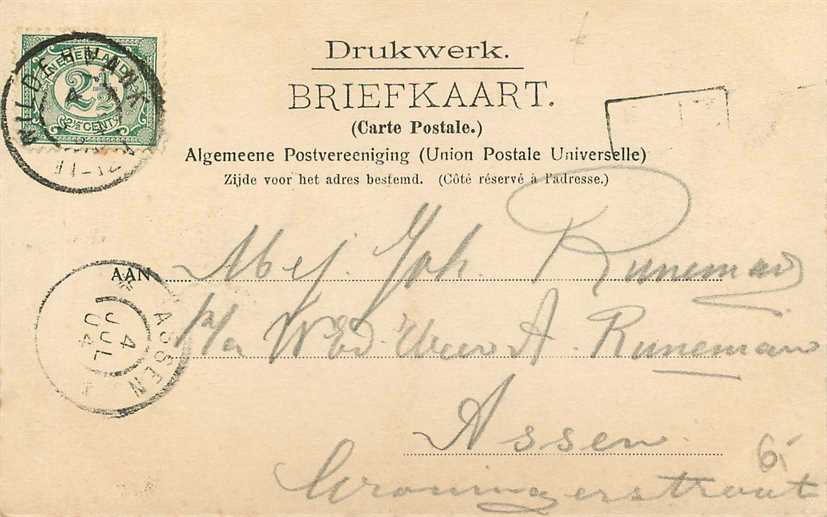 NEDERLAND
2½
2½ CENT
WILDERVANK
Drukwerk.
BRIEFKAART.
(Carte Postale.)
Algemeene Postvereeniging (Union Postale Universelle)
Zijde voor het adres bestemd. (Côté réservé à l'adresse.)
AAN Mej. Joh. Runeman
p/a Wed. A. Runeman
Assen
Groningerstraat
6.
ASSEN
4
JUL
04